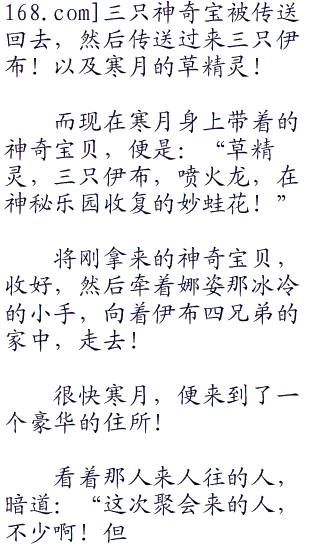 168.com]三只神奇宝被传送
回去，然后传送过来三只伊
布！以及寒月的草精灵！
而现在寒月身上带着的
神奇宝贝，便是：“草精
灵，三只伊布，喷火龙，在
神秘乐园收复的妙蛙花！”
将刚拿来的神奇宝贝，
收好，然后牵着娜姿那冰冷
的小手，向着伊布四兄弟的
家中，走去！
很快寒月，便来到了一
个豪华的住所！
看着那人来人往的人，
暗道：“这次聚会来的人，
不少啊！但